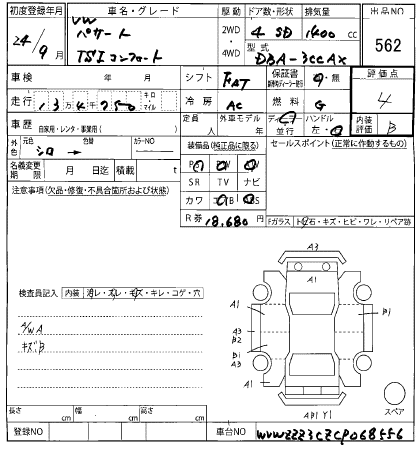 初度登録年月 車名・グレード 駆動 ドア数・形状 排気量 出品NO
24/9月 VW パサート TSIコンフォート 2WD・4WD 4 SD 1400 cc 562
型式 DBA-3CCAX
車検 年 月 シフト FAT 保証書 有・無 評価点 4
走行 13万4千250 キロ マイル 冷房 AC 燃料 G
車歴 自家用・レンタ・事業用( ) 定員 人 外車モデル 年 ディーラー 並行 ハンドル 左・右 内装評価 B
外色 元色 シロ → 色替 カラーNO 装備品(純正品に限る) セールスポイント(正常に作動するもの)
名義変更期限 月 日迄 積載 t
SR TV ナビ
カワ
注意事項(欠品・修復・不具合箇所および状態) R券 18,680円 Fガラス 飛石・キズ・ヒビ・ワレ・リペア跡
A3
A1
検査員記入 内装 汚レ・スレ・キズ・キレ・コゲ・穴
A1
B1
A/WA
A3
B2
キズB
B1
A3
A1
AB1 Y1
スペア
長さ cm 幅 cm 高さ cm
登録NO 車台NO WVWZZZ3CZCP068556